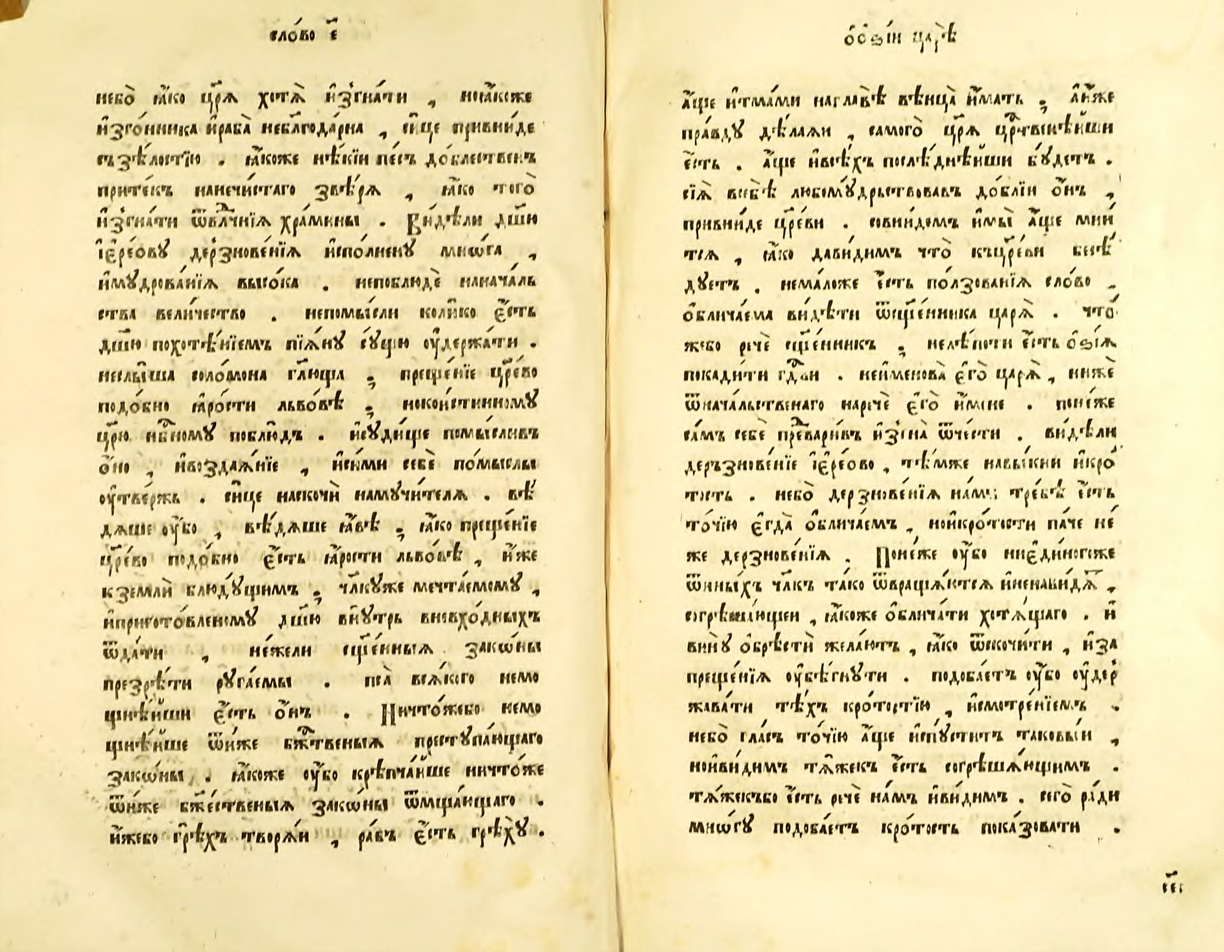 сло́во є҃
небо̀ ꙗ҆́ко цр҃ѧ̀ хотѧ̀ и҆згна́ти , ноꙗ҆́коже
и҆зго́нника и҆раба̀ неблагода́рна , си́це прiвни́де
съзѣ́лостїю . ꙗ҆́коже нѣ́кїи пе́съ до́блественъ
прите́къ нанечи́стаго звѣ́рѧ , ꙗ҆́ко того̀
и҆згна́ти ѿвл҃чнїѧ хра́мины . Ви́дѣли дш҃ю
і҆ере́ову дерзнове́нїѧ и҆спо́лнену мно́га ,
и҆мудрова́нїѧ высо́ка . непоблюдѐ нанача́ль
ства вели́чество . непомы́сли коли́ко є҆́сть
дш҃ю похотѣ́нїемъ пїѧ́ну су́щю ѹ҆держа́ти .
неслы́ша соломо́на гл҃юща ; преще́нїе цр҃ево
подо́бно ꙗ҆́рости льво́вѣ ; нокои́стинному
цр҃ю нбⷭ҇ному поблю́дъ . и҆су́дище помы́сливъ
о҆́но , и҆воздаѧ́нїе , и҆си́ми себѐ по́мыслы
ѹ҆тве́ржь . си́це наскочѝ намучи́телѧ . вѣ́
дѧше ѹ҆́бо , вѣ́дѧше ꙗ҆́вѣ ; ꙗ҆́ко преще́нїе
цр҃ево подо́бно є҆́сть ꙗ҆́рости льво́вѣ , и҆́же
кземлѝ блюду́щимъ ; чл҃куже мечта́емому ,
и҆пригото́вленому дш҃ю вну́трь внивхо́дныхъ
ѿда́ти , не́жели сщ҃е́нныѧ зако́ны
презрѣ́ти руга́емы . пса̀ всѧ́кого немо
щнѣ́йши є҆́сть о҆́нъ . Ничто́жебо немо
щнѣ́йше ѿни́же бж҃твеныѧ преступа́ющаго
зако́ны . ꙗ҆́коже ѹ҆́бо крѣпча́йше ничто́же
ѿни́же бж҃ественыѧ зако́ны ѿмща́ющаго .
и҆́жебо грѣ́хъ творѧ́и , ра́въ є҆́сть грѣ́хꙋ .
о҆ѻ҆зі́и царѣ̀
а҆́ще и҆тма́ми наглавѣ̀ вѣнца̀ и҆́мать ; а҆и҆́же
пра́вду дѣ́лаѧи , самого̀ цр҃ѧ̀ црⷭ҇твенѣ́йши
є҆́сть . а҆́ще и҆всѣ́хъ послѣ́днѣйши бу́детъ .
сїѧ̀ всебѣ̀ любому́дрьствовавъ до́блїи о҆́нъ ,
привни́де цр҃еви . совни́демъ и҆мы̀ а҆́ще мни́
тсѧ , ꙗ҆́ко да́видимъ что̀ къцр҃еви бесѣ́
дуетъ . нема́ложе є҆́сть по́лзованїѧ сло́во ,
о҆блича́ема ви́дѣти ѿсщ҃е́нника царѧ̀ . что́
жебо речѐ сщ҃е́нникъ ; нелѣ́поти є҆́сть ѻ҆зі́ѧ
покади́ти гдⷭ҇ви . неи҆менова̀ є҆го̀ царѧ̀ , ниже
ѿнача́льственаго наречѐ є҆го̀ и҆́мене . поне́же
са́мъ себѐ превари́въ и҆згна̀ ѿче́сти . ви́дѣли
деръзнове́нїе і҆ере́ово , тѣ́мже навы́кни и҆кро́
тость . небо̀ дерзнове́нїѧ на́мъ тре́бѣ є҆́сть
то́чїю є҆гда̀ о҆блича́емъ , нои҆кро́тости па́че не́
же дерзнове́нїѧ . Поне́же ѹ҆́бо ниє҆ди́ногоже
ѿины́хъ чл҃къ та́ко ѿвраща́ютсѧ и҆ненави́дѧⷮ ,
согрѣша́ющеи , ꙗ҆́коже о҆блича́ти хотѧ́щаго . и҆
вину̀ о҆брѣсти́ жела́ютъ , ꙗ҆́ко ѿскочи́ти , и҆за
преще́нїѧ ѹ҆бѣ́гнути . подоба́етъ ѹ҆́бо ѹ҆дер
жава́ти тѣ́хъ кро́тостїю , и҆смотре́нїемъ .
небо̀ гла́съ то́чїю а҆́ще и҆спу́ститъ таковы́и ,
нои҆ви́димъ тѧ́жекъ є҆́сть согрѣша́ющимъ .
тѧ́жекъбо є҆́сть речѐ на́мъ и҆ви́димъ . сего̀ ра́ди
мно́гу подоба́етъ кро́тость пока́зовати .